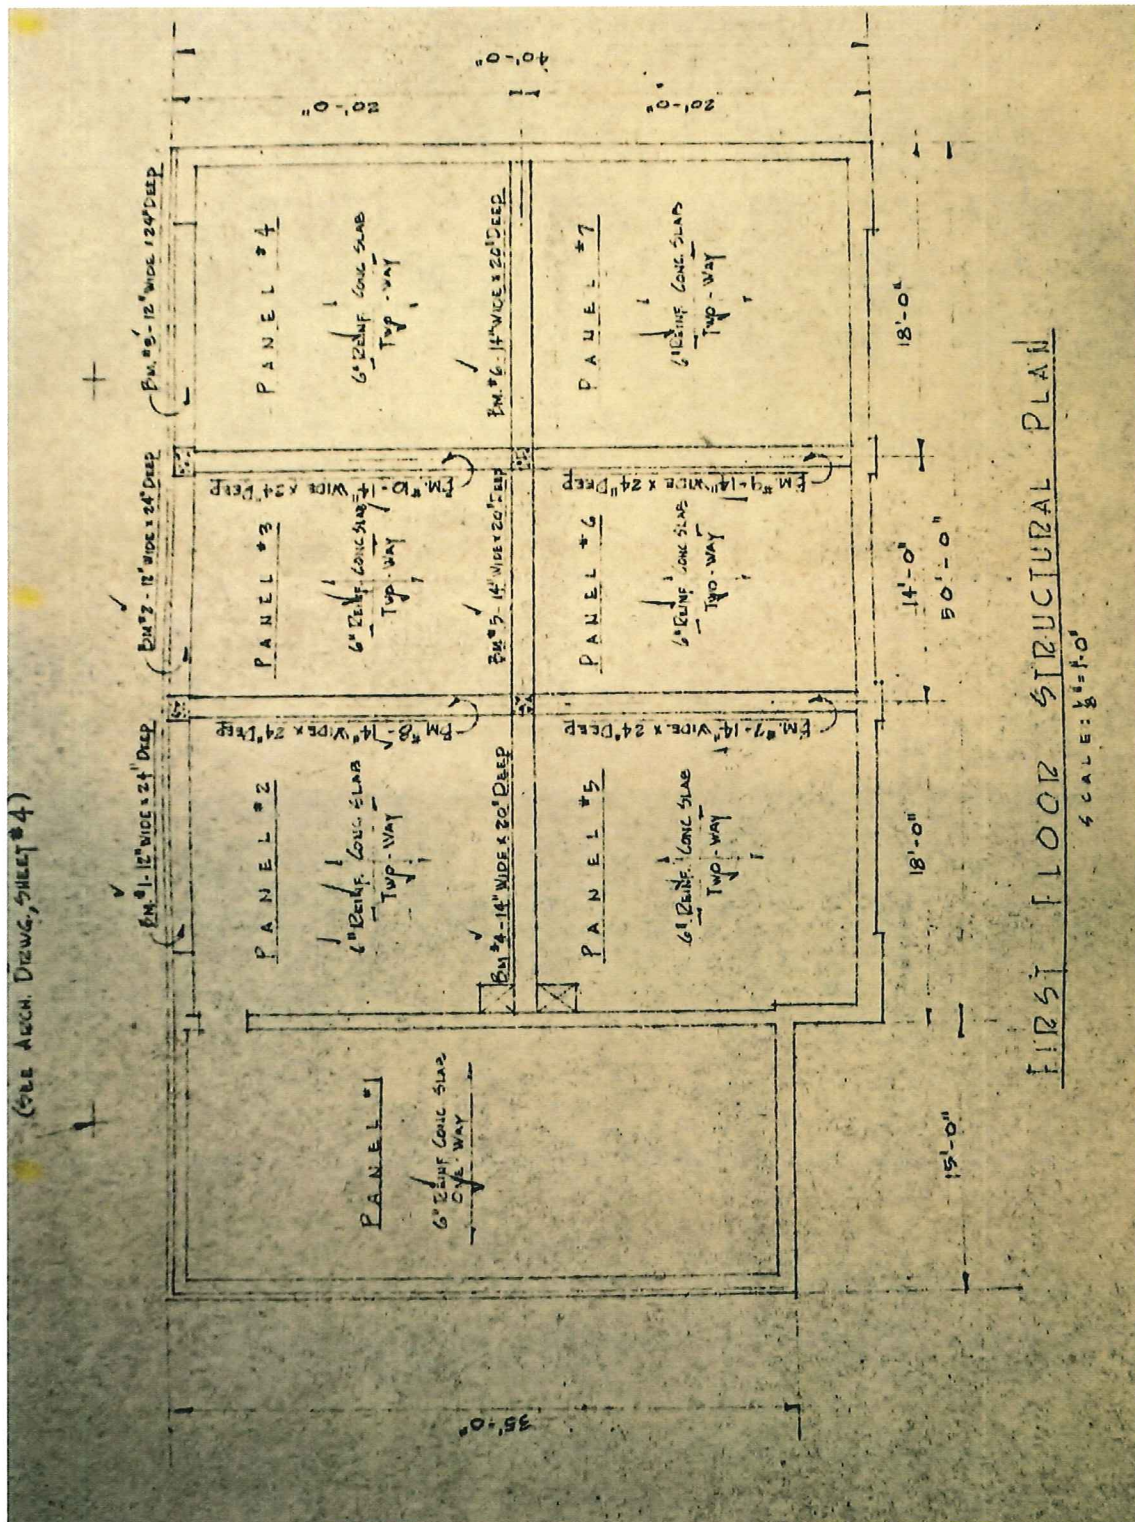 (SEE ARCH. DRWG., SHEET #4)
BM. #1 - 12" WIDE x 24" DEEP
BM #2 - 12" WIDE x 24" DEEP
BM. #3 - 12" WIDE x 24" DEEP
PANEL #1
6" REINF CONC SLAB
ONE-WAY
PANEL #2
6" REINF. CONC SLAB
TWO-WAY
PANEL #3
6" REINF. CONC SLAB
TWO-WAY
PANEL #4
6" REINF CONC SLAB
TWO-WAY
BM #4 - 14" WIDE x 20" DEEP
BM #5 - 14" WIDE x 20" DEEP
BM. #6 - 14" WIDE x 20" DEEP
BM. #8 - 14" WIDE x 24" DEEP
BM. #10 - 14" WIDE x 24" DEEP
PANEL #5
6" REINF. CONC SLAB
TWO-WAY
PANEL #6
6" REINF CONC SLAB
TWO-WAY
PANEL #7
6" REINF CONC SLAB
TWO-WAY
BM. #7 - 14" WIDE x 24" DEEP
BM. #9 - 14" WIDE x 24" DEEP
35'-0"
20'-0"
20'-0"
40'-0"
15'-0"
18'-0"
14'-0"
18'-0"
50'-0"
FIRST FLOOR STRUCTURAL PLAN
SCALE: 1/8"=1'-0"